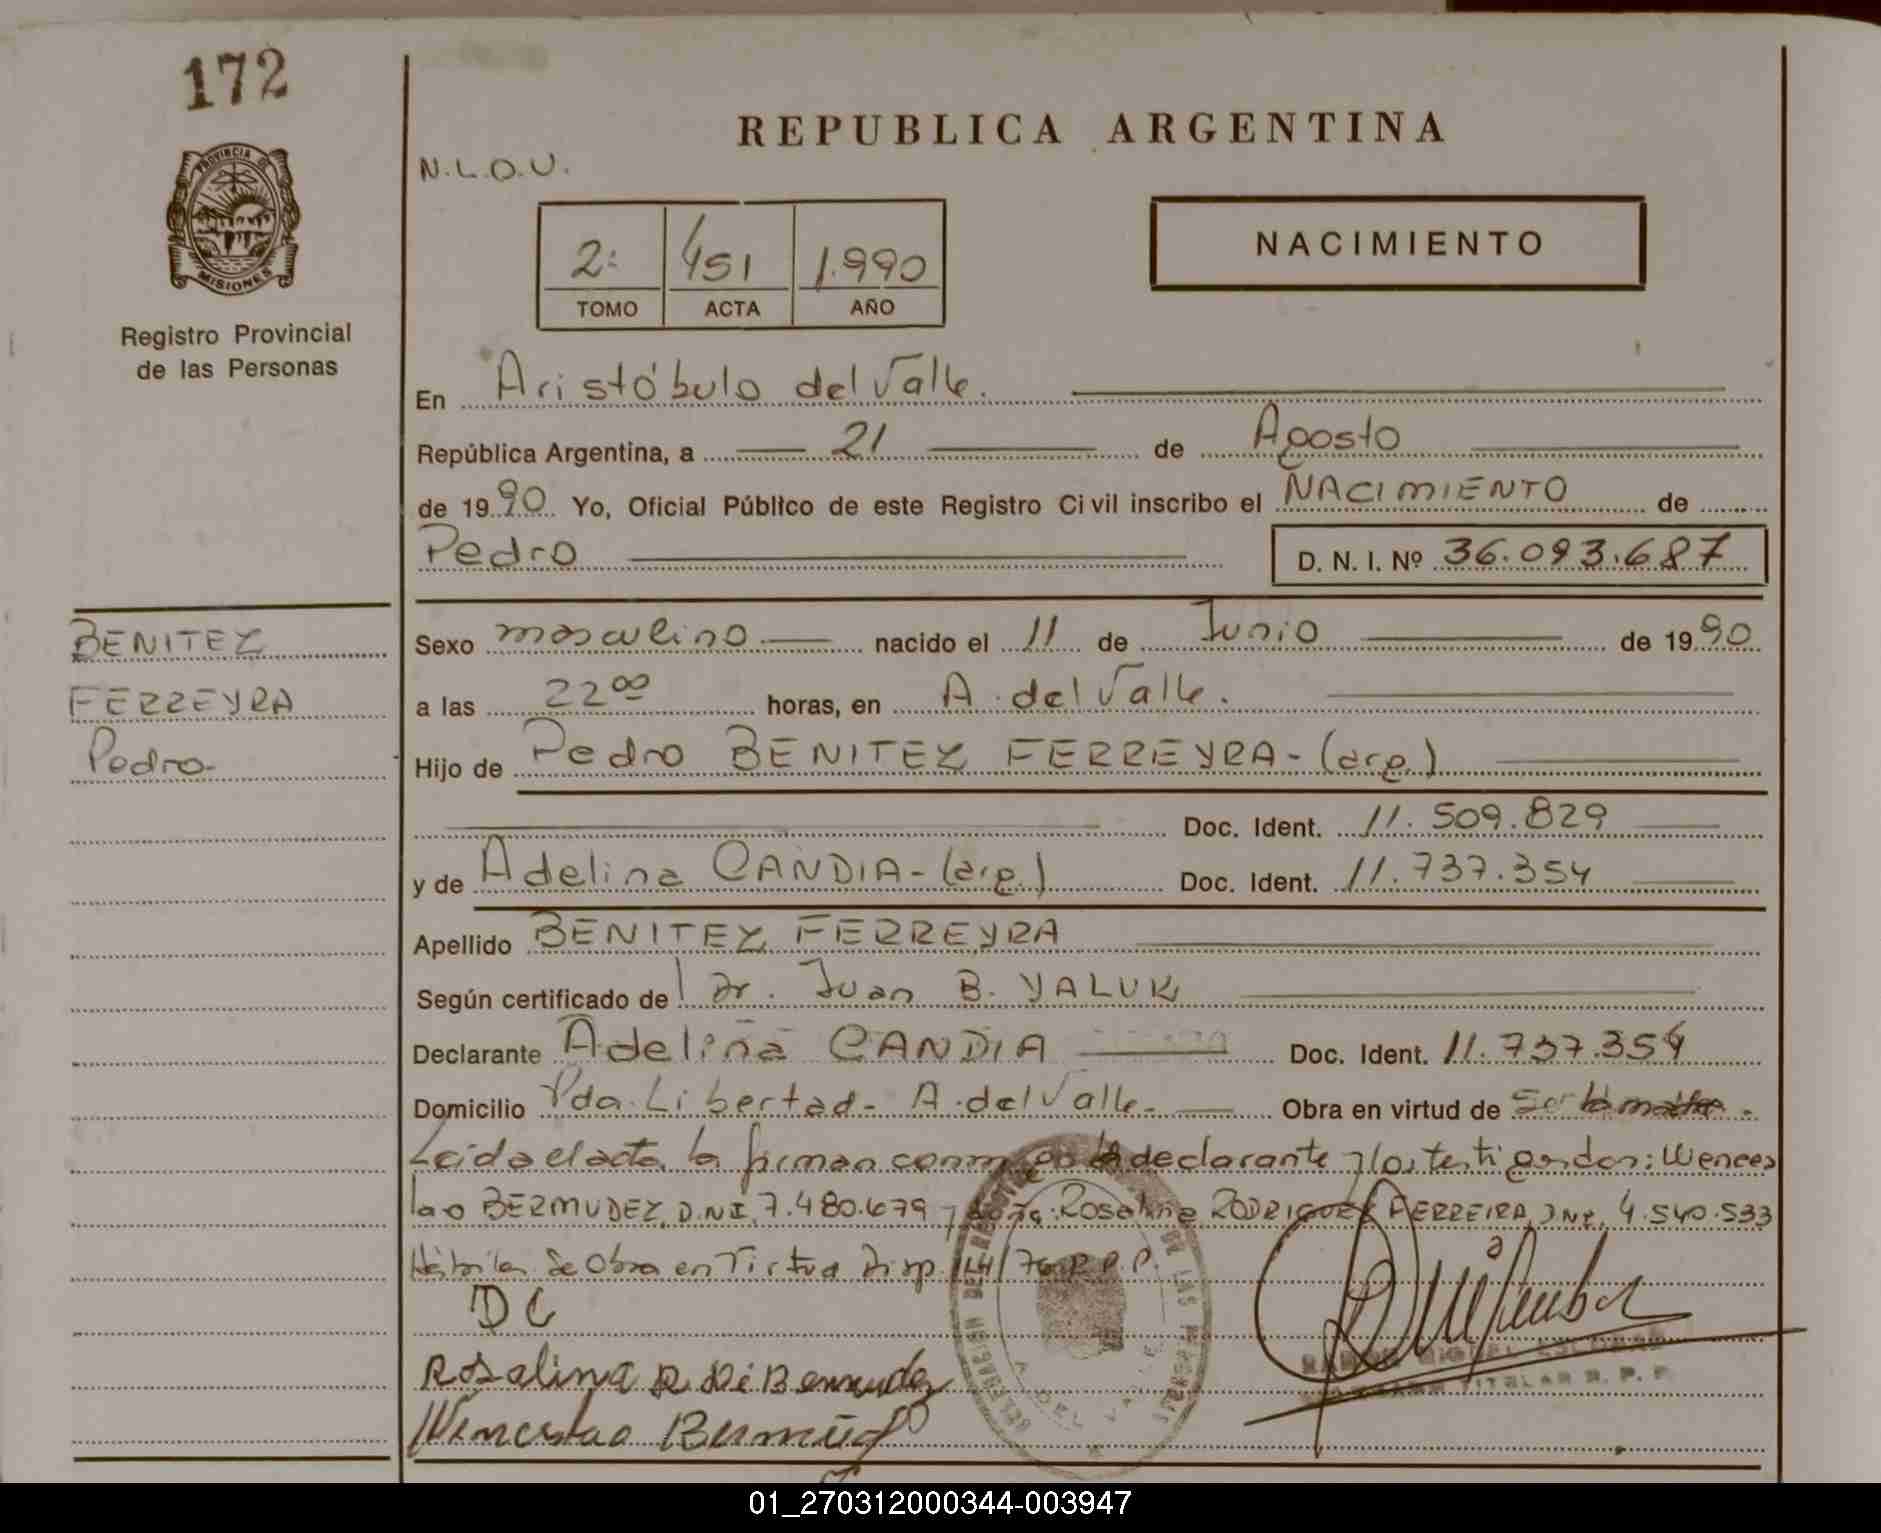 172
PROVINCIA DE
MISIONES
Registro Provincial
de las Personas
REPUBLICA ARGENTINA
N.L.O.U.
2: 451 1.990
TOMO ACTA AÑO
NACIMIENTO
En Aristóbulo del Valle.
República Argentina, a 21 de Agosto
de 1990 Yo, Oficial Público de este Registro Civil inscribo el NACIMIENTO de
Pedro D. N. I. Nº 36.093.687
BENITEZ
FERREYRA
Pedro-
Sexo masculino nacido el 11 de Junio de 1990
a las 22 00 horas, en A. del Valle.
Hijo de Pedro BENITEZ FERREYRA - (arg.)
Doc. Ident. 11.509.829
y de Adelina CANDIA - (arg.) Doc. Ident. 11.737.354
Apellido BENITEZ FERREYRA
Según certificado de Dr. Juan B. YALUK
Declarante Adelina CANDIA Doc. Ident. 11.737.354
Domicilio Pda. Libertad - A. del Valle. Obra en virtud de Ser la madre.
Leida el acta, la firman conmigo la declarante y los testigos don: Wences
lao BERMUDEZ, D.N.I. 7.480.679 y doña: Rosalina RODRIGUEZ FERREIRA, DNI. 4.540.533
Hábiles. Se Obra en Virtud Disp. /76 R.P.P.
DC
Rosalina R De Bermudez
Wenceslao Bermudez
DELEGACION DEL REGISTRO DE LAS PERSONAS
A. DEL VALLE
RAMON MIGUEL ESCOBAR
TITULAR R. P. P.
01_270312000344-003947